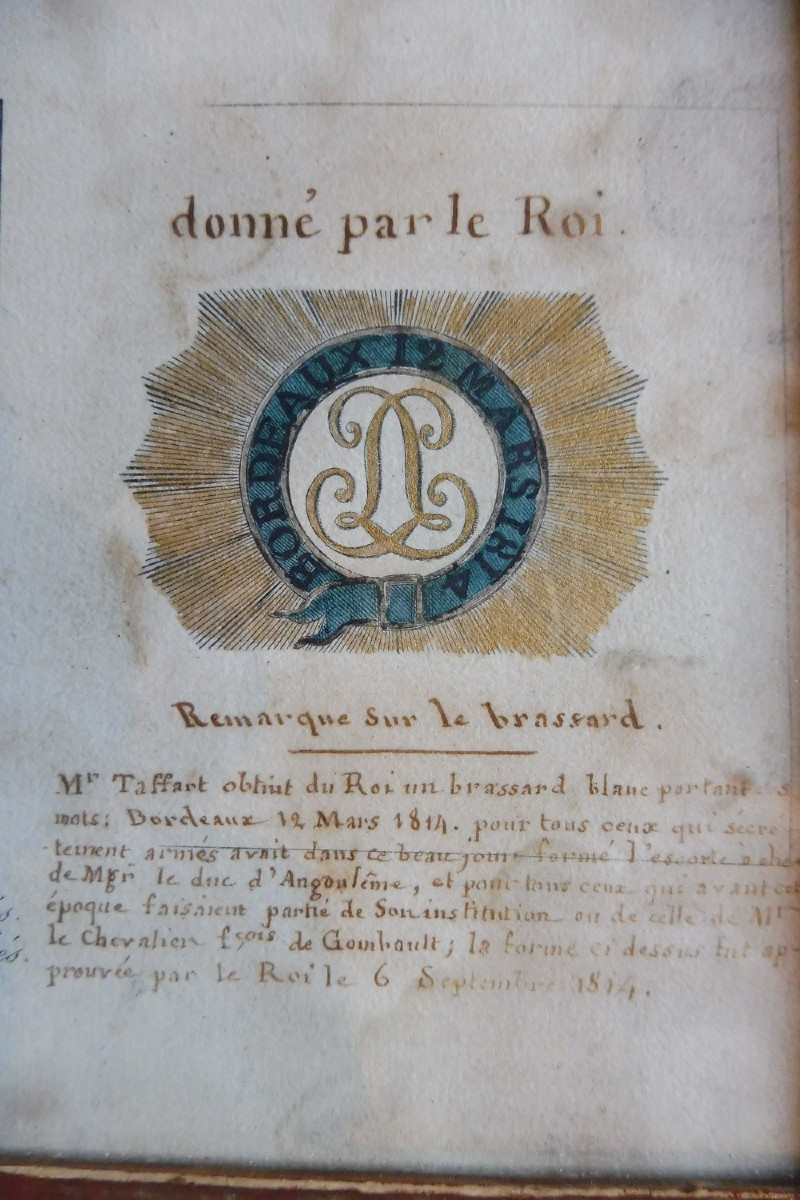 donné par le Roi.
BORDEAUX 12 MARS 1814
Remarque sur le brassard.
Mr Taffart obtint du Roi un brassard blanc portant s
mots: Bordeaux 12 Mars 1814. pour tous ceux qui secre-
-tement armés avait dans ce beau jour formé l'escorte à che
de Mgr le duc d'Angoulême, et pour tous ceux qui avant cet
époque faisaient partie de Son institution ou de celle de Mr
le Chevalier fçois de Gombault; la forme ci dessus fut ap-
prouvée par le Roi le 6 Septembre 1814.
s.
és.